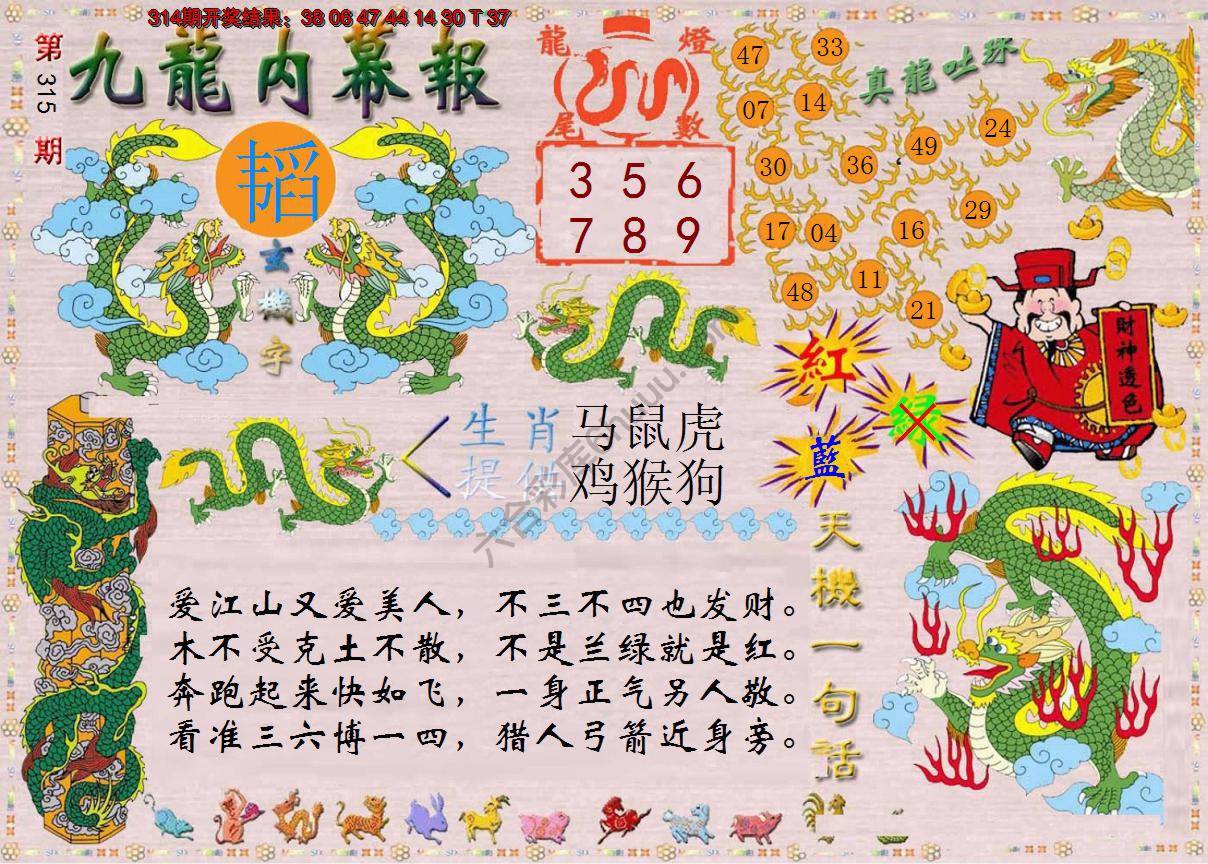 314期开奖结果：38 06 47 44 14 30 T 37
第315期
九龍内幕報
韬
玄機字
龍燈尾數
3 5 6
7 8 9
真龍吐珠
47
33
07
14
30
36
49
24
17
04
16
29
48
11
21
財神透色
紅
绿
藍
生肖
提供
马鼠虎
鸡猴狗
天機一句話
爱江山又爱美人，不三不四也发财。
木不受克土不散，不是兰绿就是红。
奔跑起来快如飞，一身正气另人敬。
看准三六博一四，猎人弓箭近身旁。